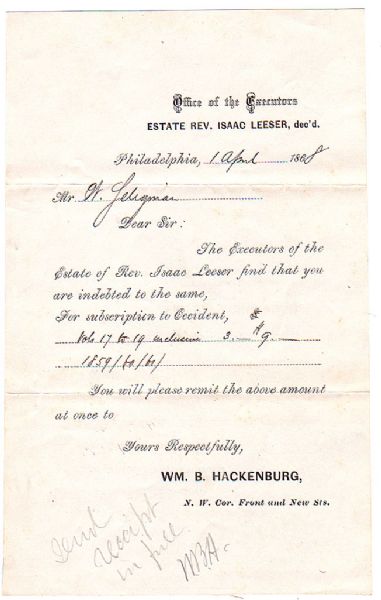 Office of the Executors
ESTATE REV. ISAAC LEESER, dec'd.
Philadelphia, 1 April 1868
Mr. W. Seligman
Dear Sir:
The Executors of the
Estate of Rev. Isaac Leeser find that you
are indebted to the same,
For subscription to Occident, $
Vols 17 to 19 inclusive 3. 9.
1859/60/61/
You will please remit the above amount
at once to
Yours Respectfully,
WM. B. HACKENBURG,
N. W. Cor. Front and New Sts.
Send
receipt
in full
WBH.